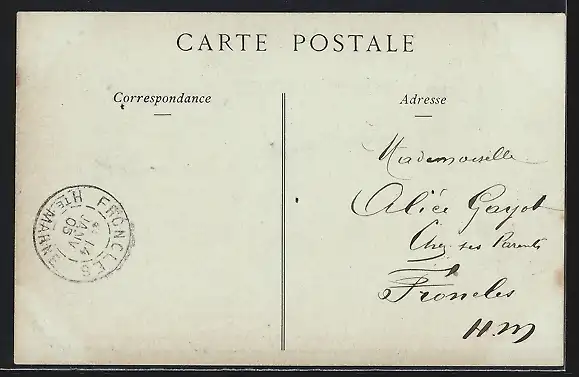 CARTE POSTALE
Correspondance
Adresse
Mademoiselle
Alice Gayot
Chez ses Parents
Froncles
H.M
FRONCLES
HTE MARNE
14
JANV
05